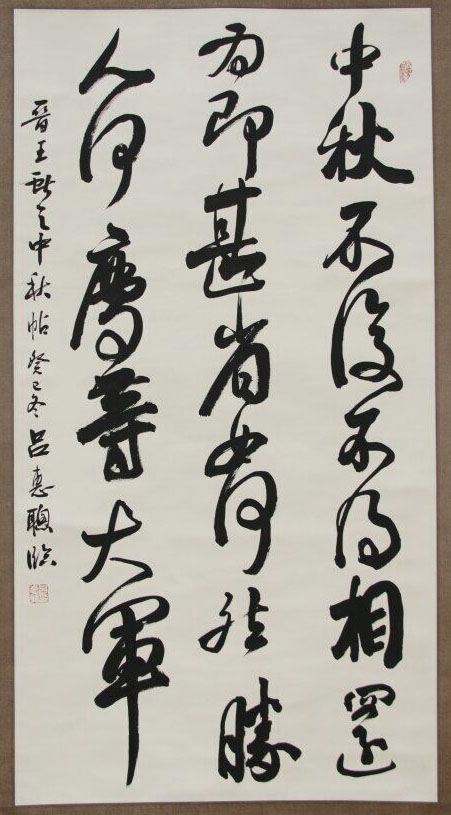 中秋不復不得相還
為即甚省如何然勝
人何慶等大軍
晉王獻之中秋帖癸巳冬呂惠聰臨